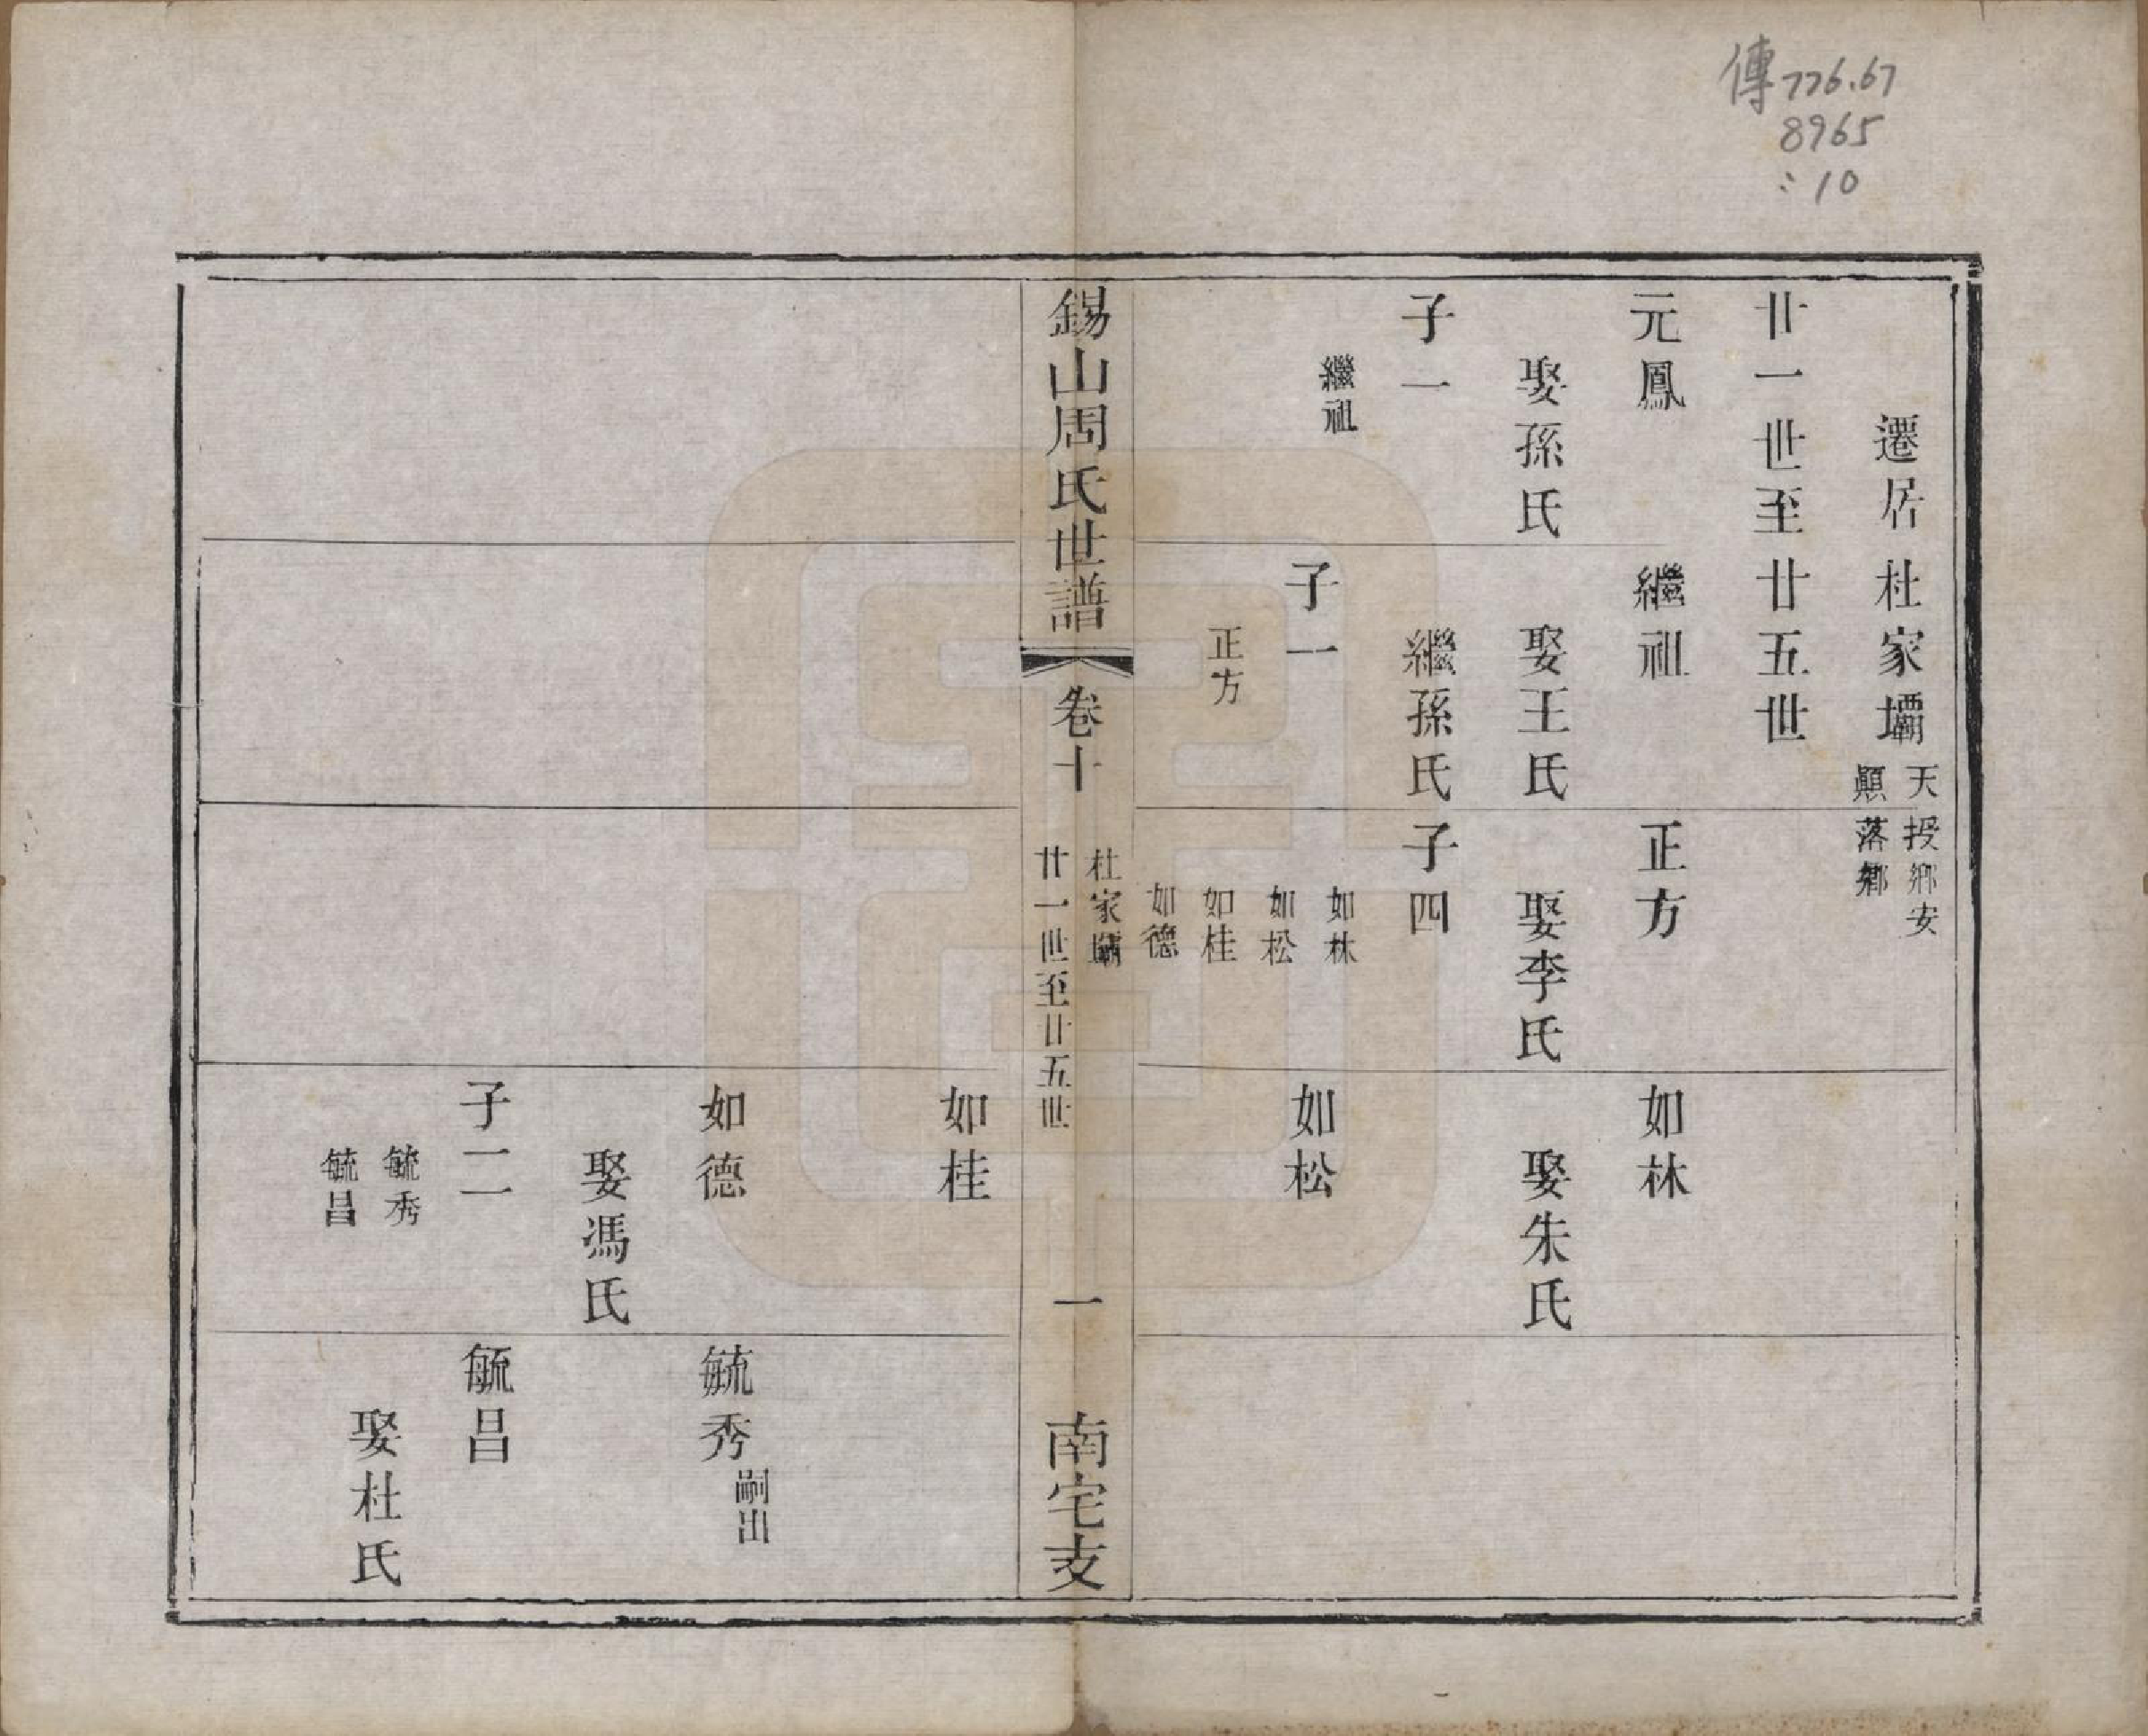 傳776.67
8965
:10
遷居杜家壩
天授鄉安
顯落鄉
廿一世至廿五世
元鳳
娶孫氏
子一
繼祖
繼祖
娶王氏
繼孫氏
子一
正方
正方
娶李氏
子四
如林
如松
如桂
如德
如林
娶朱氏
如松
錫山周氏世譜
卷十
杜家壩
廿一世至廿五世
一
南宅支
如桂
如德
娶馮氏
子二
毓秀
毓昌
毓秀
嗣出
毓昌
娶杜氏